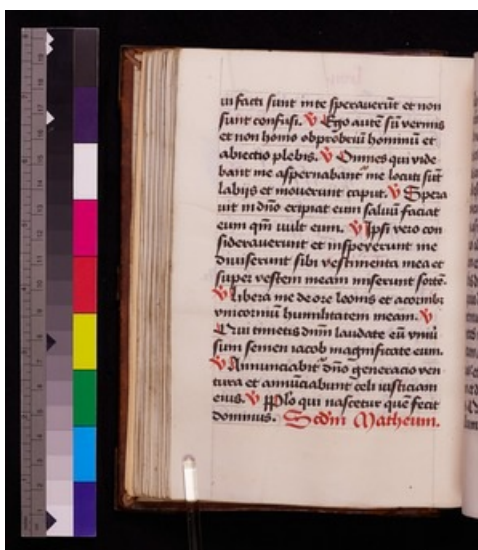 ui facti sunt in te speraverūt et non
sunt confusi. ℣ Ego autē sū vermis
et non homo obprobriū hominū et
abiectio plebis. ℣ Omnes qui vide
bant me aspernabant᷑ me locuti sūt
labijs et moverunt caput. ℣ Spera
uit in dn̄o eripiat eum saluū faciat
eum qm̄ uult eum. ℣ Ipsi vero con
sideraverunt et inspexerunt me
diuiserunt sibi vestimenta mea et
super vestem meam miserunt sortē.
℣ Libera me de ore leonis et a cornibꝰ
vnicorniū humilitatem meam. ℣
Qui timetis dn̄m laudate eū vniū
sum semen iacob magnificate eum.
℣ Annunciabit᷑ dn̄o generacio ven
tura et annūciabunt celi iusticiam
eius. ℣ pplo qui nascetur quē fecit
dominus. Scdm̄ Matheum.